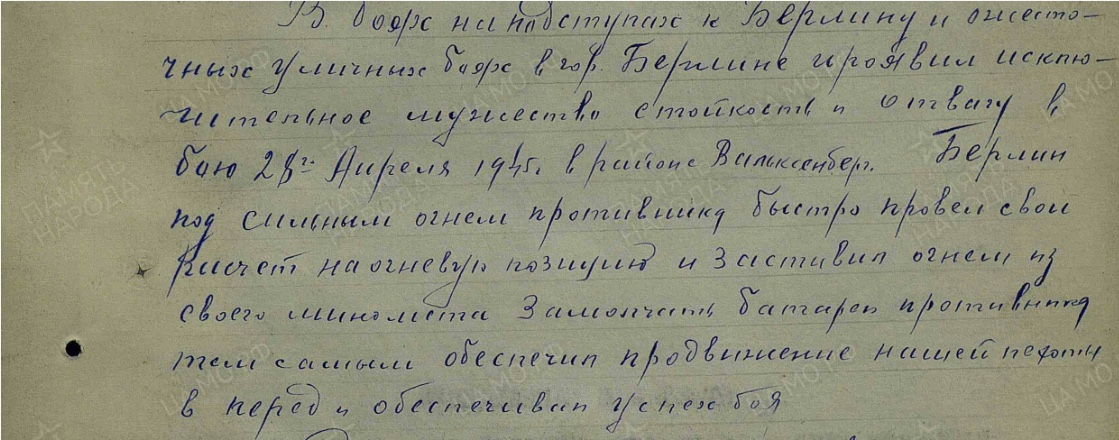 В боях на подступах к Берлину и ожесто-
чных уличных боях в гор. Берлине проявил исклю-
чительное мужество стойкость и отвагу в
бою 28го Апреля 1945г. в районе Вальксенберг. Берлин
под сильным огнем противника быстро провел свои
расчет на огневую позицию и заставил огнем из
своего миномета замолчать батарею противника
тем самым обеспечил продвижение нашей пехоты
в перед и обеспечивал успех боя
ПАМЯТЬ НАРОДА
ЦАМО РФ